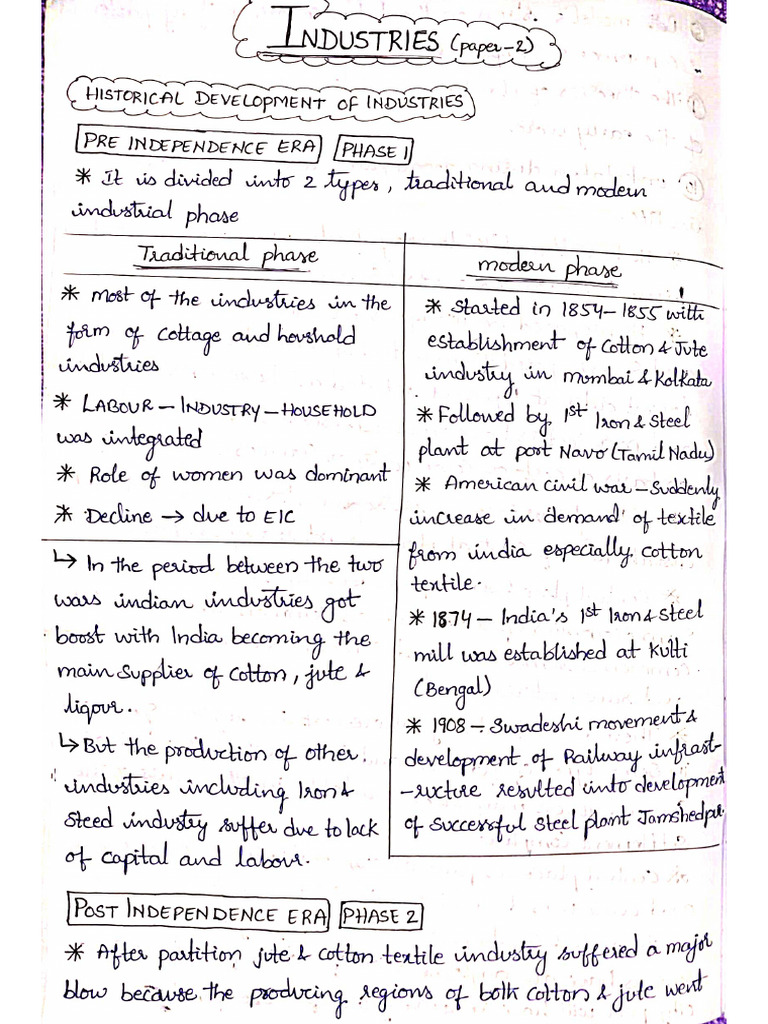 INDUSTRIES (paper-2)
HISTORICAL DEVELOPMENT OF INDUSTRIES
PRE INDEPENDENCE ERA PHASE 1
* It is divided into 2 types, traditional and modern
industrial phase
Traditional phase
* Most of the industries in the
form of cottage and houshold
industries
* LABOUR - INDUSTRY - HOUSEHOLD
was integrated
* Role of women was dominant
* Decline → due to EIC
↳ In the period between the two
wars indian industries got
boost with India becoming the
main supplier of cotton, jute &
liqour.
↳ But the production of other
industries including Iron &
Steed industry suffer due to lack
of capital and labour.
modern phase
* Started in 1854-1855 with
establishment of Cotton & Jute
industry in mumbai & Kolkata
* Followed by 1st Iron & Steel
plant at port Navo (Tamil Nadu)
* American civil war - Suddenly
increase in demand of textile
from india especially cotton
textile.
* 1874 - India's 1st Iron & Steel
mill was established at Kulti
(Bengal)
* 1908 - Swadeshi movement &
development of Railway infrast-
-ructure resulted into development
of successful steel plant Jamshedpur.
POST INDEPENDENCE ERA PHASE 2
* After partition jute & cotton textile industry suffered a major
blow because the producing regions of both cotton & jute went